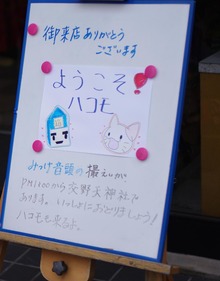 御来店ありがとう
ございます
ようこそ!
ハコモ
みつけ音頭の撮えいが
PM1:00から交野天神社で
あります。いっしょにおどりましょう!
ハコモも来るよ。